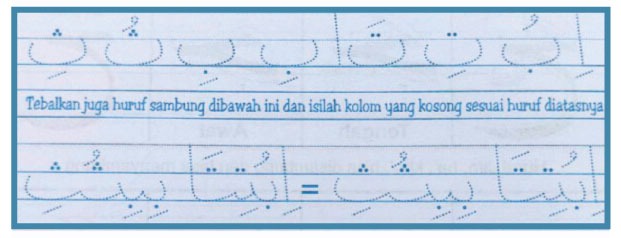 اِ بُ تِ تَ ا بِ بِ ثُ ثِ
Tebalkan juga huruf sambung dibawah ini dan isilah kolom yang kosong sesuai huruf diatasnya
اِبُتِتَا بِبِثُثِ = اِبُتِتَا بِبِثُثِ